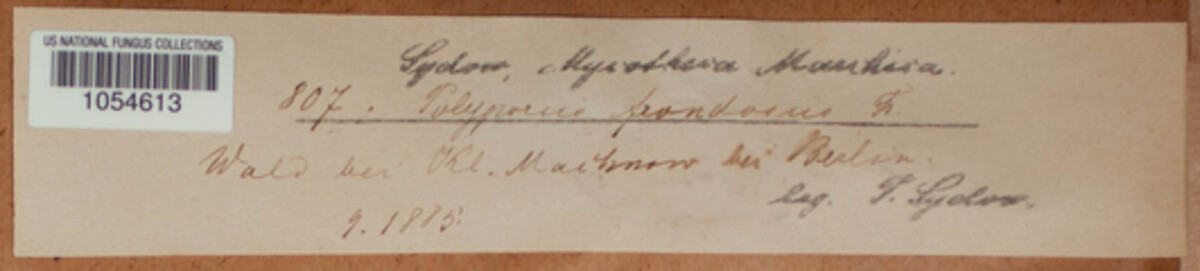 US NATIONAL FUNGUS COLLECTIONS
1054613
Sydow, Mycotheca Marchica.
807. Polyporus frondosus F.
Wald bei Kl. Machnow bei Berlin.
leg. P. Sydow.
9. 1885.